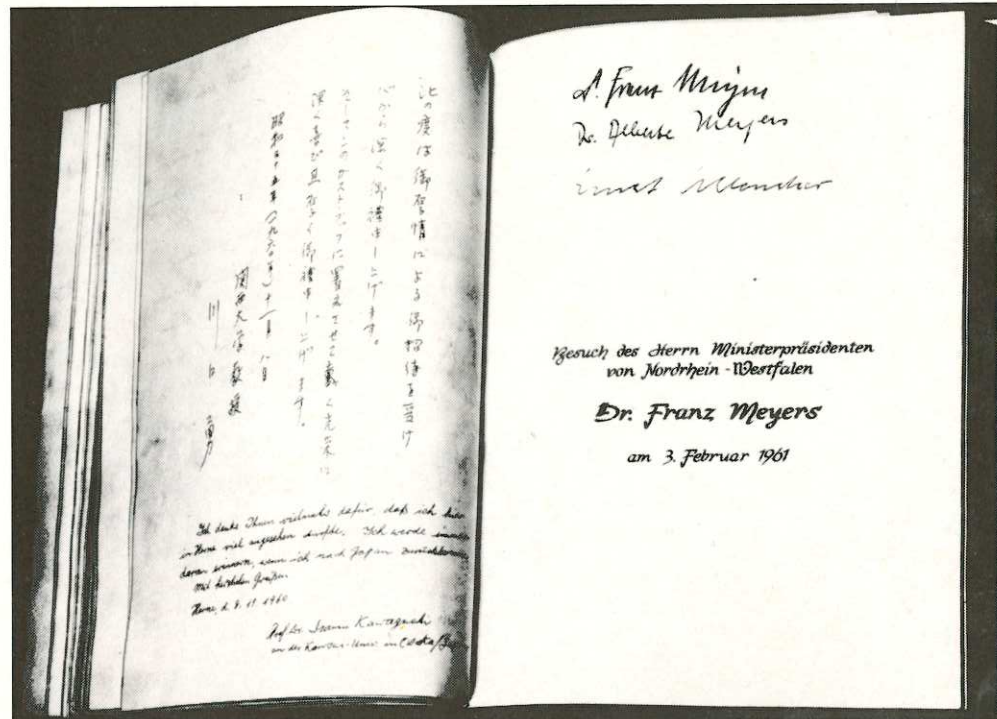 此の度は御厚情による御招待を受け
心から深く御禮申し上げます。
ゲストブックに書かせて戴く光栄に
深く喜び且厚く御禮申し上げます。
昭和三十五年(一九六〇年)十一月八日
関西大学教授
川口 勇
Ich danke Ihnen vielmals dafür, daß ich hier
in Herne viel angesehen durfte. Ich werde
daran erinnern, wenn ich nach Japan zurückkomme
Mit Grüßen.
Herne, d. 9. 11. 1960
Prof. Dr. Isamu Kawaguchi
an der Kansai-Univ. in Osaka/
Dr. Franz Meyers
Dr. Alberte Meyers
Ernst
Besuch des Herrn Ministerpräsidenten
von Nordrhein-Westfalen
Dr. Franz Meyers
am 3. Februar 1961